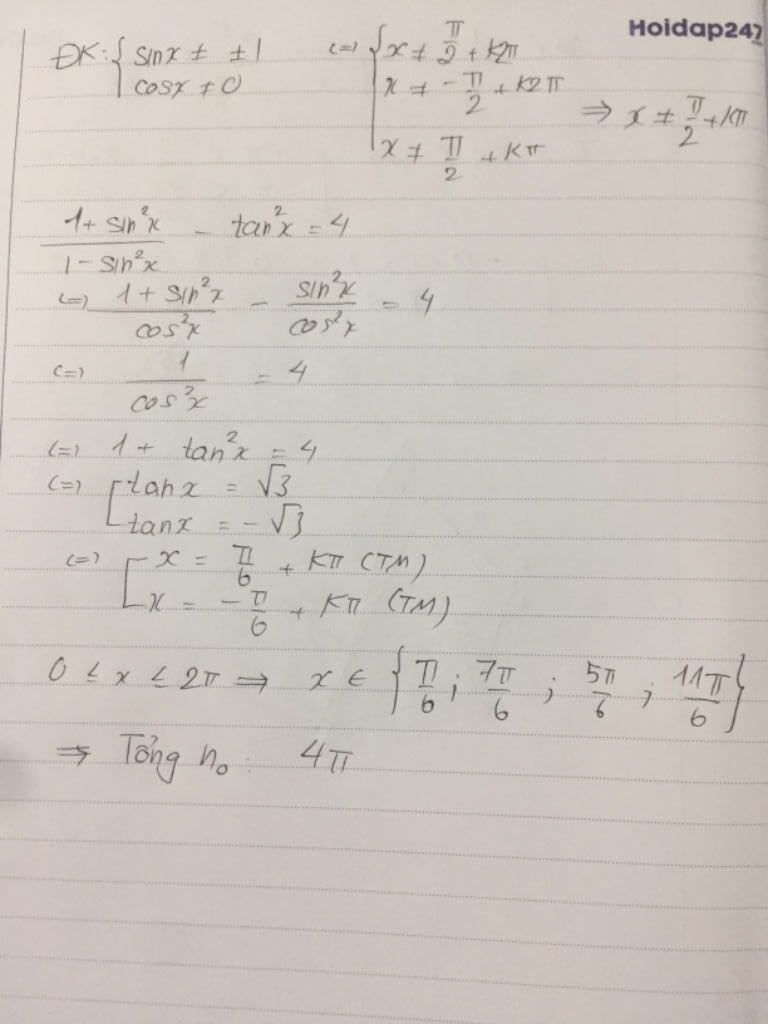 Hoidap247
ĐK: { sinx ≠ ±1 (=) { x ≠ π/2 + k2π
cosx ≠ 0 x ≠ -π/2 + k2π
x ≠ π/2 + kπ => x ≠ π/2 + kπ
(1 + sin²x)/(1 - sin²x) - tan²x = 4
(=) (1 + sin²x)/(cos²x) - (sin²x)/(cos²x) = 4
(=) 1/(cos²x) = 4
(=) 1 + tan²x = 4
(=) [ tanx = √3
tanx = -√3
(=) [ x = π/6 + kπ (TM)
x = -π/6 + kπ (TM)
0 ≤ x ≤ 2π => x ∈ { π/6 ; 7π/6 ; 5π/6 ; 11π/6 }
=> Tổng n₀ : 4π